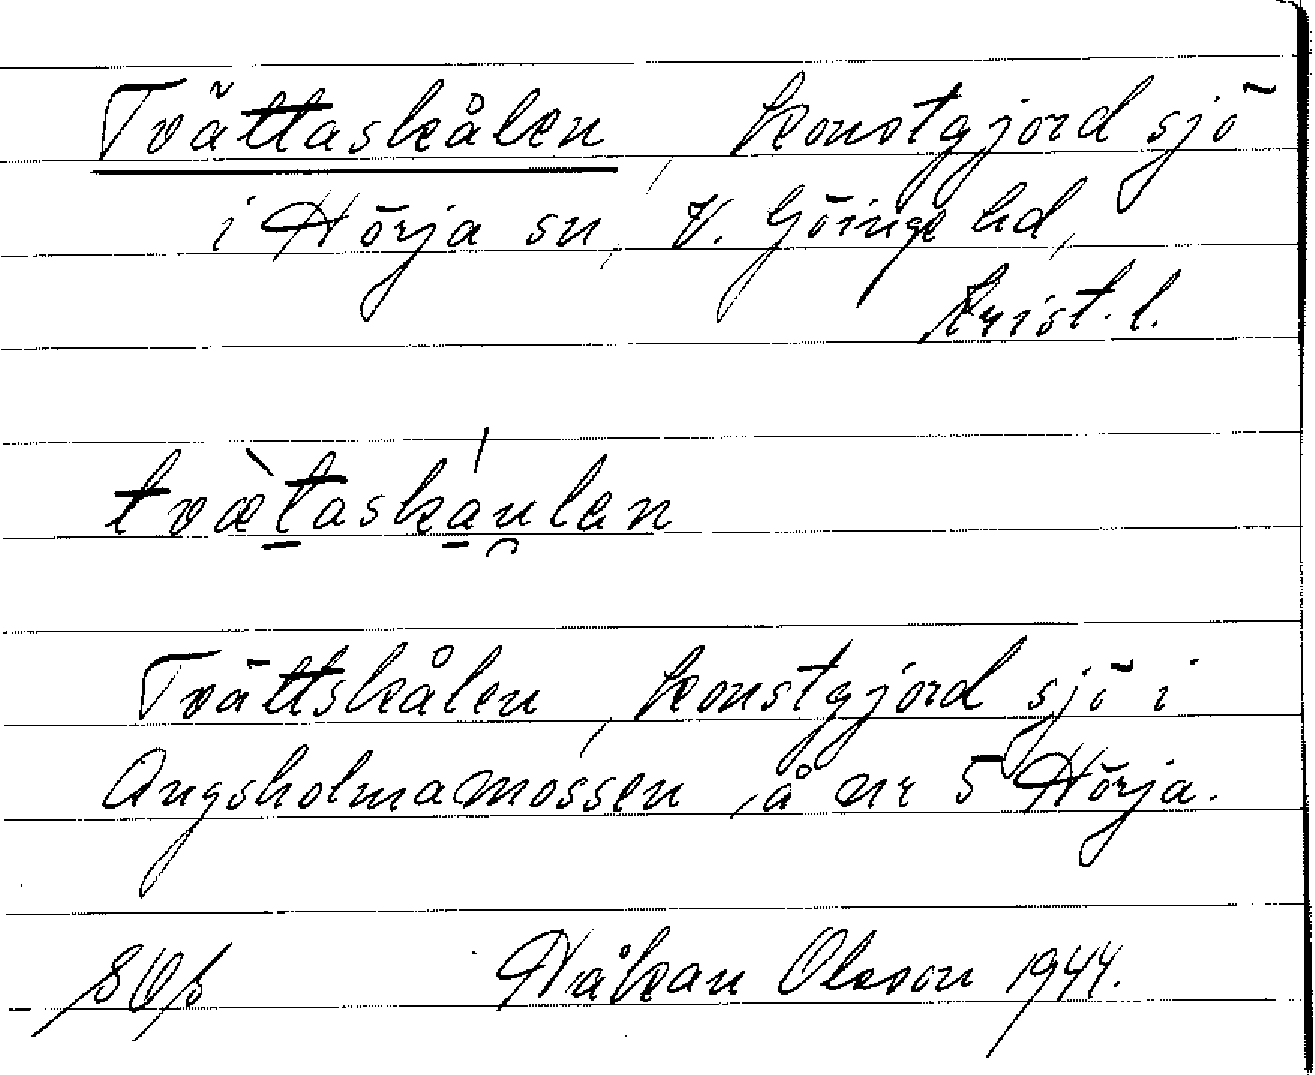 Tvättaskålen, konstgjord sjö
i Hörja sn, V. Göinge hd,
Krist. l.
tvæ̀t̠ask̍a̠u̯len
Tvättskålen, konstgjord sjö i
Ängsholmamossen, å nr 5 Hörja.
Håkan Olsson 1944.